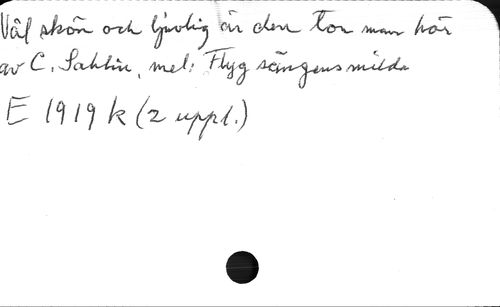 Väl skön och ljuvlig är den ton man hör
av C. Sahlin, mel: Flyg sångens milda
E 1919 k (2 uppl.)